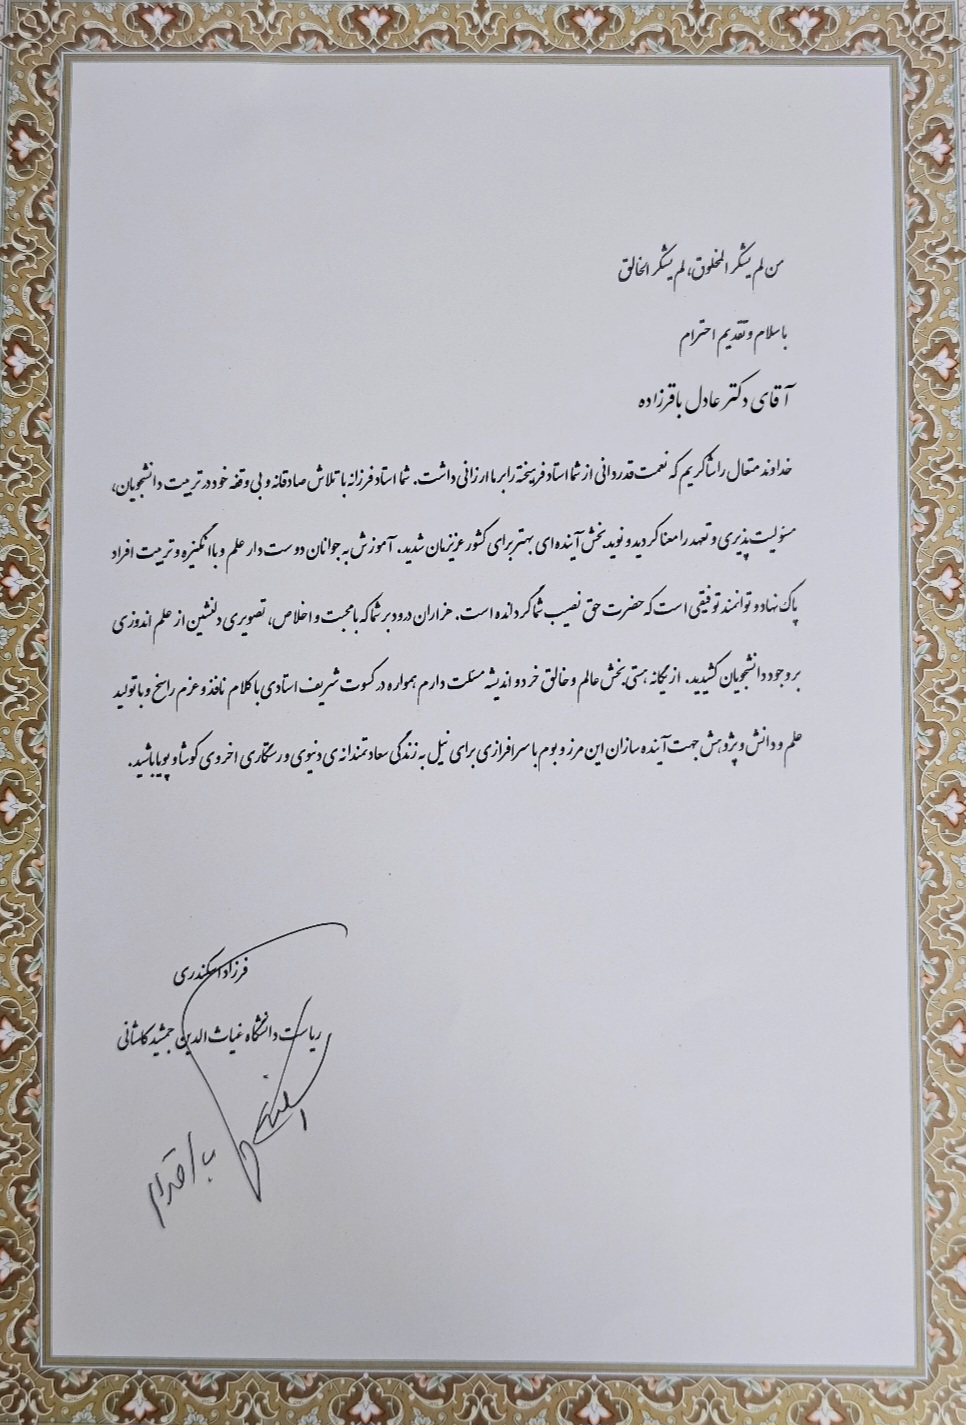 من لم یشکر المخلوق، لم یشکر الخالق
با سلام و تقدیم احترام
آقای دکتر عادل باقرزاده
خداوند متعال را شاکریم که نعمت قدردانی از شما استاد فرهیخته را بر ما ارزانی داشت. شما استاد فرزانه با تلاش صادقانه و بی وقفه خود در تربیت دانشجویان،
مسئولیت پذیری و تعهد را معنا کردید و نوید بخش آینده ای بهتر برای کشور عزیزمان شدید. آموزش به جوانان دوست دار علم و با انگیزه و تربیت افراد
پاک نهاد و توانمند توفیقی است که حضرت حق نصیب شما گردانده است. هزاران درود بر شما که با محبت و اخلاص، تصویری دلنشین از علم اندوزی
بر وجود دانشجویان کشیدید. از یگانه هستی بخش عالم و خالق خرد و اندیشه مسئلت دارم همواره در کسوت شریف استادی با کلام نافذ و عزم راسخ و با تولید
علم و دانش و پژوهش جهت آینده سازان این مرز و بوم با سرافرازی برای نیل به زندگی سعادتمندانه ی دنیوی و رستگاری اخروی کوشا و پویا باشید.
فرزاد اسکندری
ریاست دانشگاه غیاث الدین جمشید کاشانی
با احترام